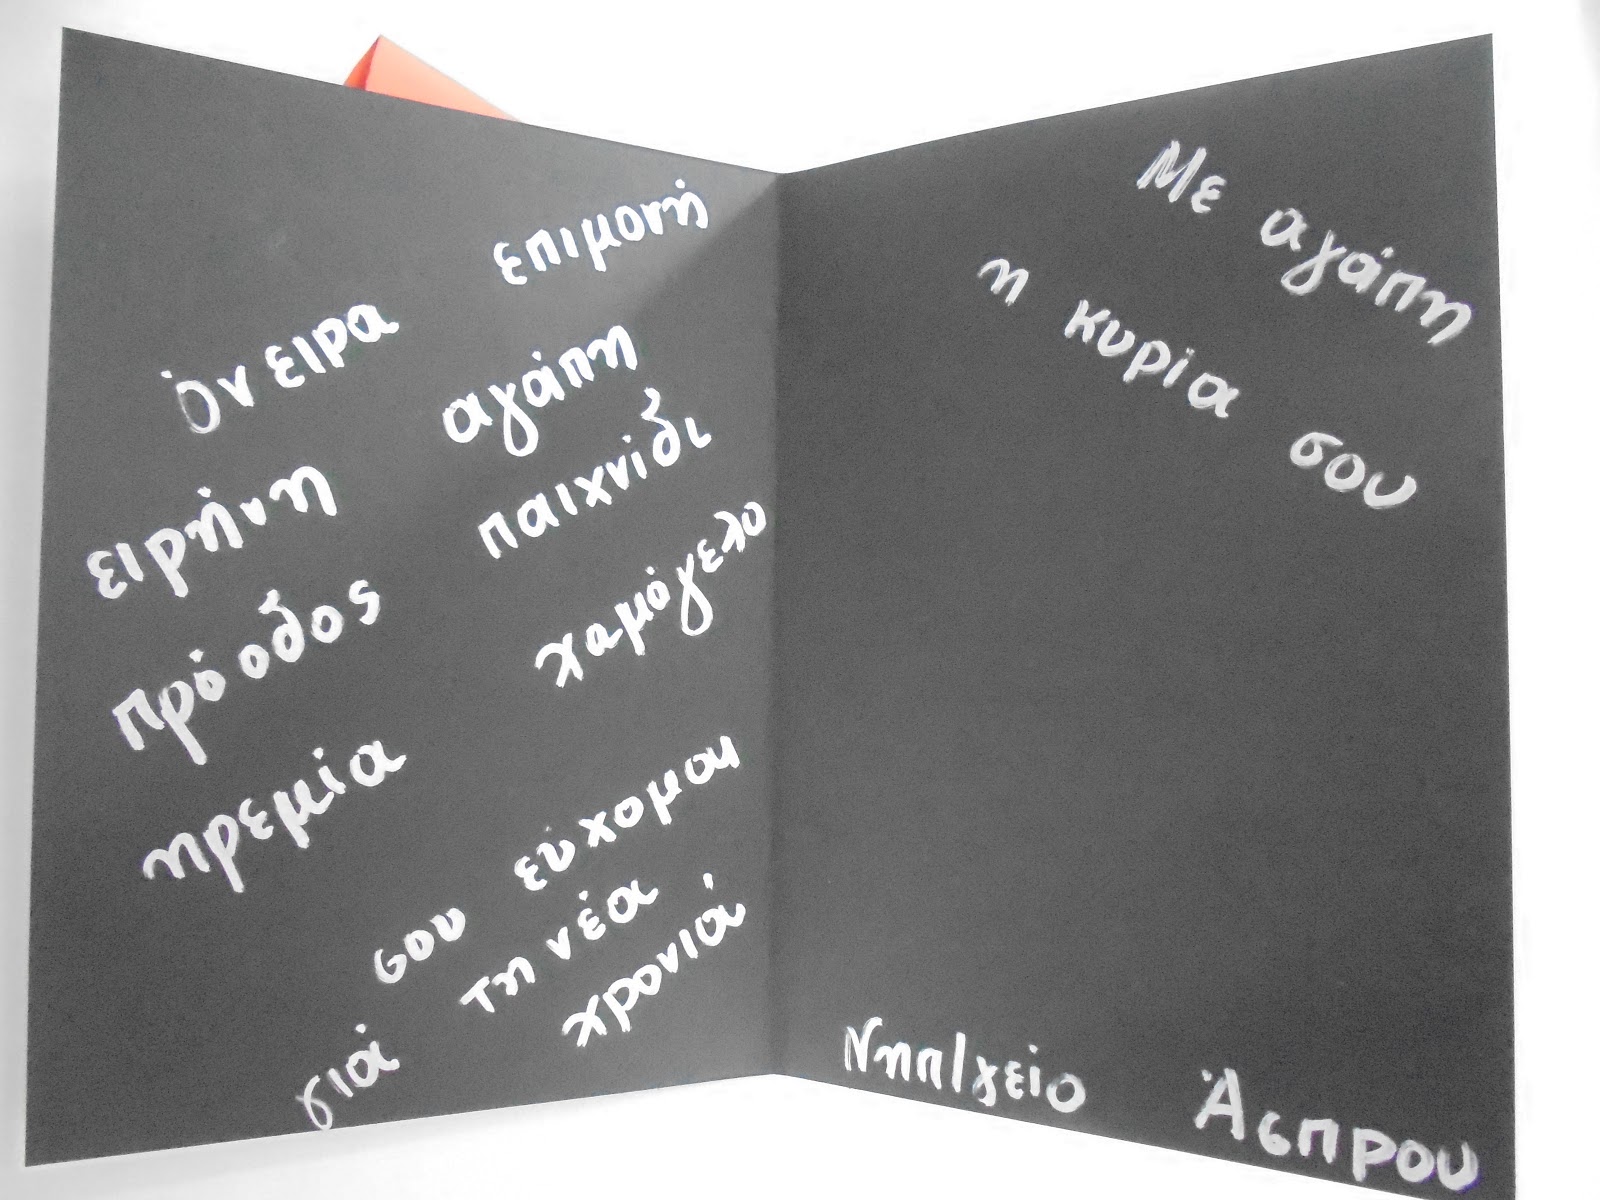 Όνειρα επιμονή
ειρήνη αγάπη
πρόοδος παιχνίδι
ηρεμία χαμόγελο
σου εύχομαι
γιά τη νέα
χρονιά
Με αγάπη
η κυρία σου
Νηπ/γείο Άσπρου